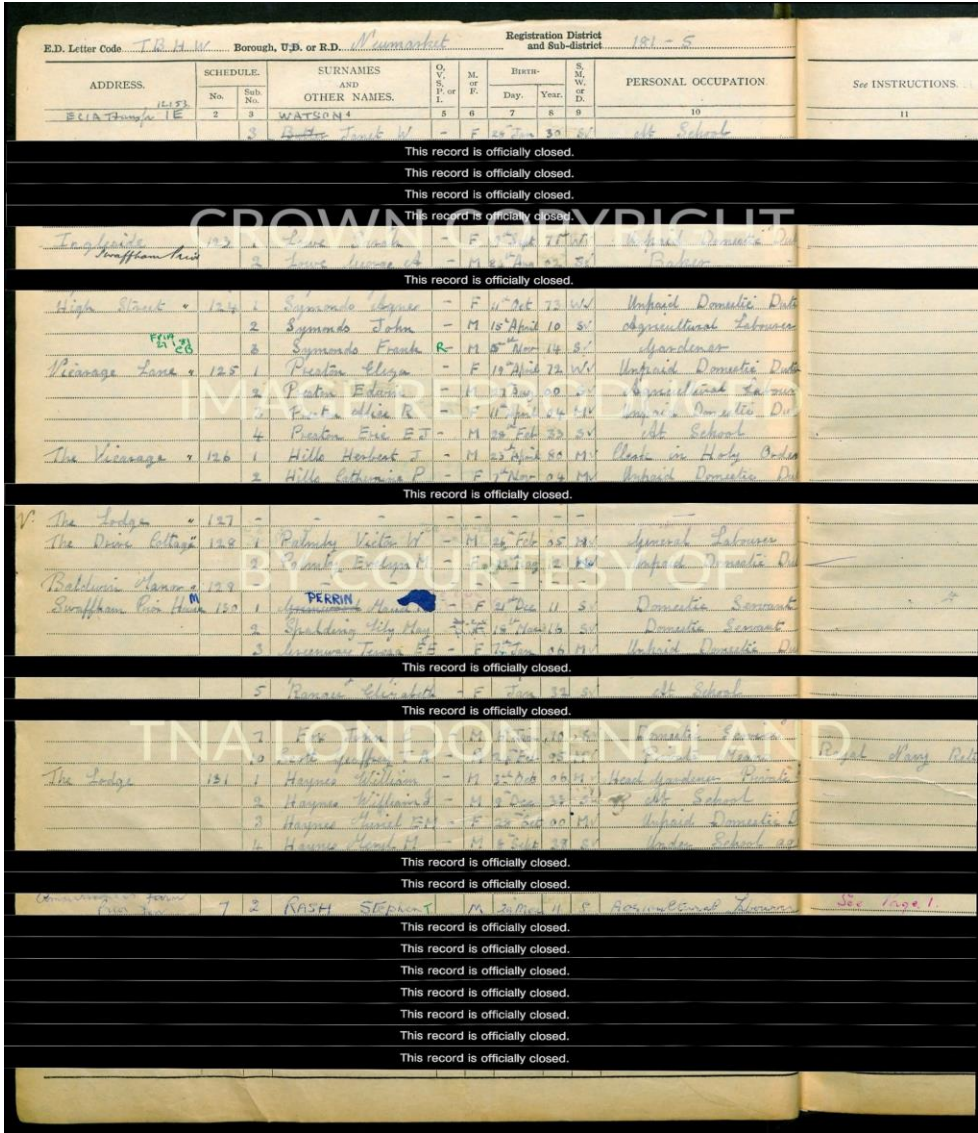 E.D. Letter Code TBHW Borough, U.D. or R.D. Newmarket Registration District and Sub-district 181 - 5
ADDRESS. SCHEDULE. No. Sub. No. SURNAMES AND OTHER NAMES. O, V, S, P, or I. M. or F. BIRTH- Day. Year. S, M, W, or D. PERSONAL OCCUPATION. See INSTRUCTIONS.
12.1.53
1E 2 3 WATSON 4 5 6 7 8 9 10 11
3 Janet W - F 25 Jan 30 S At School
This record is officially closed.
This record is officially closed.
This record is officially closed.
This record is officially closed.
CROWN COPYRIGHT
Ingleside 123 1 Lowe - F Sept 75 W Unpaid Domestic Dut
Swaffham Prior 2 Lowe George A - M Aug 02 S Baker
This record is officially closed.
High Street " 124 1 Symonds Agnes - F 11th Oct 73 W Unpaid Domestic Duti
2 Symonds John - M 15th April 10 S Agricultural Labourer
3 Symonds Frank R - M 5th Nov 14 S Gardener
Vicarage Lane " 125 1 Preston Eliza - F 19th April 72 W Unpaid Domestic Duti
2 Preston Edwin - M 27 Aug 00 Agricultural Labour
IMAGE REPRODUCED
3 Preston Alice R - F 11th April 04 M Unpaid Domestic Du
4 Preston Eric E J - M 28th Feb 33 S At School
The Vicarage " 126 1 Hills Herbert J. - M 23rd April 80 M Clerk in Holy Order
2 Hills Catherine P - F 7th Nov 04 M Unpaid Domestic Du
This record is officially closed.
The Lodge " 127 - - - - - - -
The Drive Cottage " 128 1 Palmby Victor W - M 26th Feb 05 M General Labourer
2 Palmby Evelyn M - F 12 M Unpaid Domestic Du
BY COURTESY OF
Baldwin Manor " 129 - -
Swaffham Prior House 130 1 PERRIN - F 21st Dec 11 S Domestic Servant
2 Spalding Lily May F 18th Mar 16 S Domestic Servant
3 Greenway Teresa E E - F Jan 06 M Unpaid Domestic Du
This record is officially closed.
5 Ranger Elizabeth - F Jan 32 S At School
This record is officially closed.
TNA LONDON ENGLAND
7 M Domestic Servant
10 Scott Geoffrey M Royal Navy
The Lodge 131 1 Haynes William - M Oct 06 M Head Gardener Private
2 Haynes William - M 9th Dec 33 S At School
3 Haynes Muriel E M - F 28th 00 M Unpaid Domestic D
4 Haynes M - M 8 Sept 38 S Under School ag
This record is officially closed.
This record is officially closed.
7 2 RASH STEPHEN T M 11 S Agricultural Labourer See Page 1.
This record is officially closed.
This record is officially closed.
This record is officially closed.
This record is officially closed.
This record is officially closed.
This record is officially closed.
This record is officially closed.